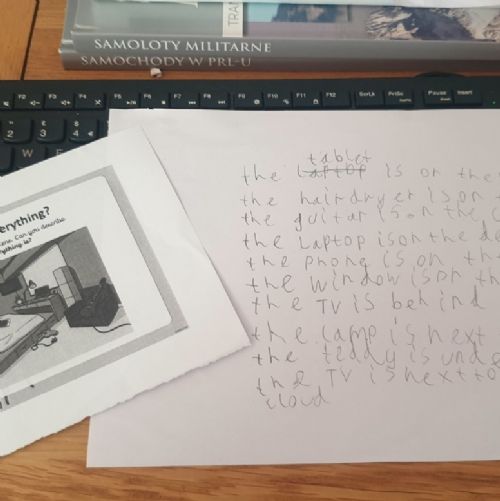 TRA
SAMOLOTY MILITARNE
SAMOCHODY W PRL-U
F2 F3 F4 F5 F6 F7 F8 F9 F10 F11 F12 ScrLk PrtSc Pause Insert
2 3 4
W E
erything?
Can you describe
ything is?
tablet
the laptop is on the
the hairdryer is on
the guitar is on the
the Laptop is on the de
the phone is on th
the window is on th
the TV is behind
the lamp is next
the teddy is unde
the TV is next to
cloud